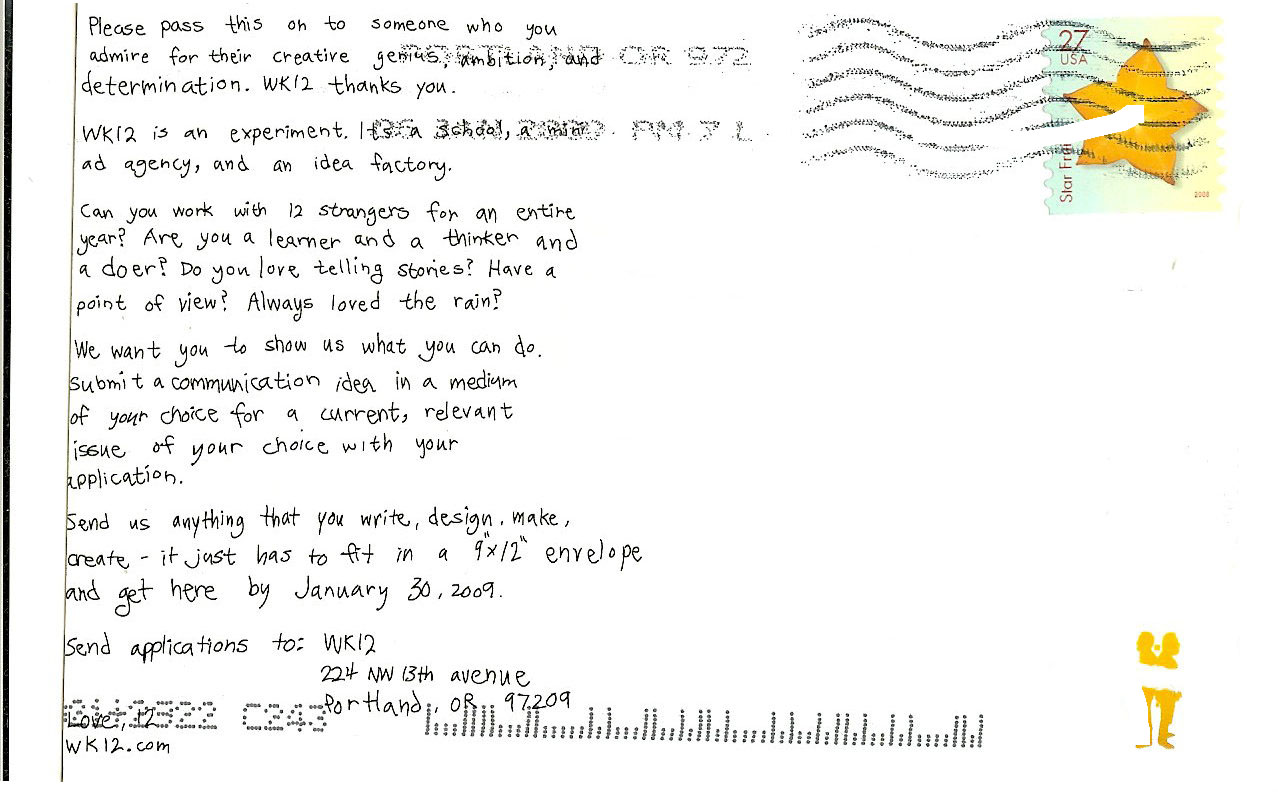 Please pass this on to someone who you
admire for their creative genius, ambition, and
determination. WK12 thanks you.
PORTLAND OR 972
WK12 is an experiment. It's a school, a mini
ad agency, and an idea factory.
PM 7 L
Can you work with 12 strangers for an entire
year? Are you a learner and a thinker and
a doer? Do you love telling stories? Have a
point of view? Always loved the rain?
We want you to show us what you can do.
Submit a communication idea in a medium
of your choice for a current, relevant
issue of your choice with your
application.
Send us anything that you write, design, make,
create - it just has to fit in a 9"x12" envelope
and get here by January 30, 2009.
Send applications to: WK12
224 NW 13th avenue
Portland, OR 97209
Love, 12
C243
WK12.com
27
USA
Star
2008